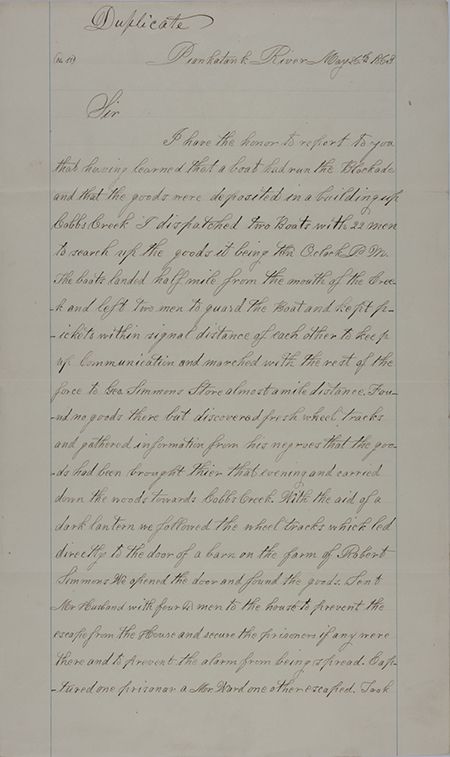 Duplicate
Piankatank River May 26th 1863
Sir
I have the honor to report to you
that having learned that a boat had run the Blockade
and that the goods were deposited in a building up
Cobbs Creek I dispatched two Boats with 22 men
to search up the goods it being ten Oclock P.M.
The boats landed half mile from the mouth of the Cree-
-k and left two men to guard the Boat and kept p-
-ickets within signal distance of each other to keep
up Communication and marched with the rest of the
force to Geo. Simmons Store almost a mile distance. Fou-
nd no goods there but discovered fresh wheel tracks
and gathered information from his negroes that the goo-
ds had been brought thier that evening and carried
down the woods towards Cobbs Creek. With the aid of a
dark lantern we followed the wheel tracks which led
directly to the door of a barn on the farm of Robert
Simmons We opened the door and found the goods. Sent
Mr Husband with four (4) men to the house to prevent the
escape from the House and secure the prisoners if any were
there and to prevent the alarm from being spread. Cap-
-tured one prisonar a Mr. Ward one other escaped. Took